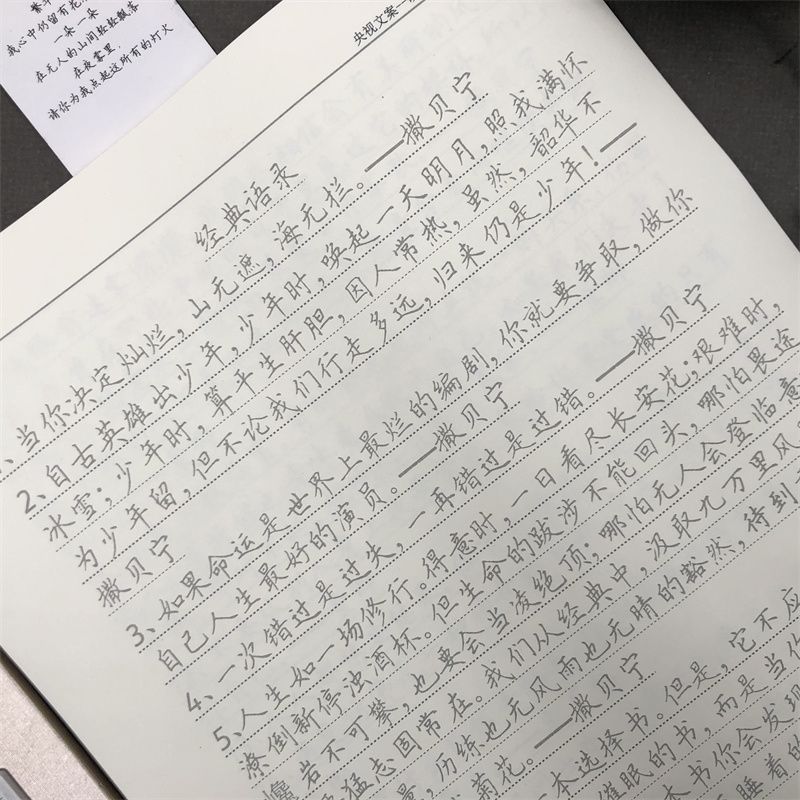 我心中仍留有花
一朵一朵
在无人的山间轻轻飘落
在夜雾里
请你为我点起这所有的灯火
央视文案
经典语录
1、当你决定灿烂,山无遮,海无拦。——撒贝宁
2、自古英雄出少年,少年时,唤起一天明月,照我满怀
冰雪;少年时,算平生肝胆,因人常热,虽然,韶华不
为少年留,但不论我们行走多远,归来仍是少年!——
撒贝宁
3、如果命运是世界上最烂的编剧,你就要争取,做你
自己人生最好的演员。——撒贝宁
4、一次错过是过失,一再错过是过错。——撒贝宁
5、人生如一场修行。得意时,一日看尽长安花;艰难时,
潦倒新停浊酒杯。但生命的跋涉不能回头,哪怕畏途
巉岩不可攀,也要会当凌绝顶;哪怕无人会登临意
猛志固常在。我们从经典中,汲取九万里风
历练也无风雨也无晴的豁然,待到
菊花。——撒贝宁
本选择书。但是,它不应
催眠的书,而是当你
本书你会发现
睡着的